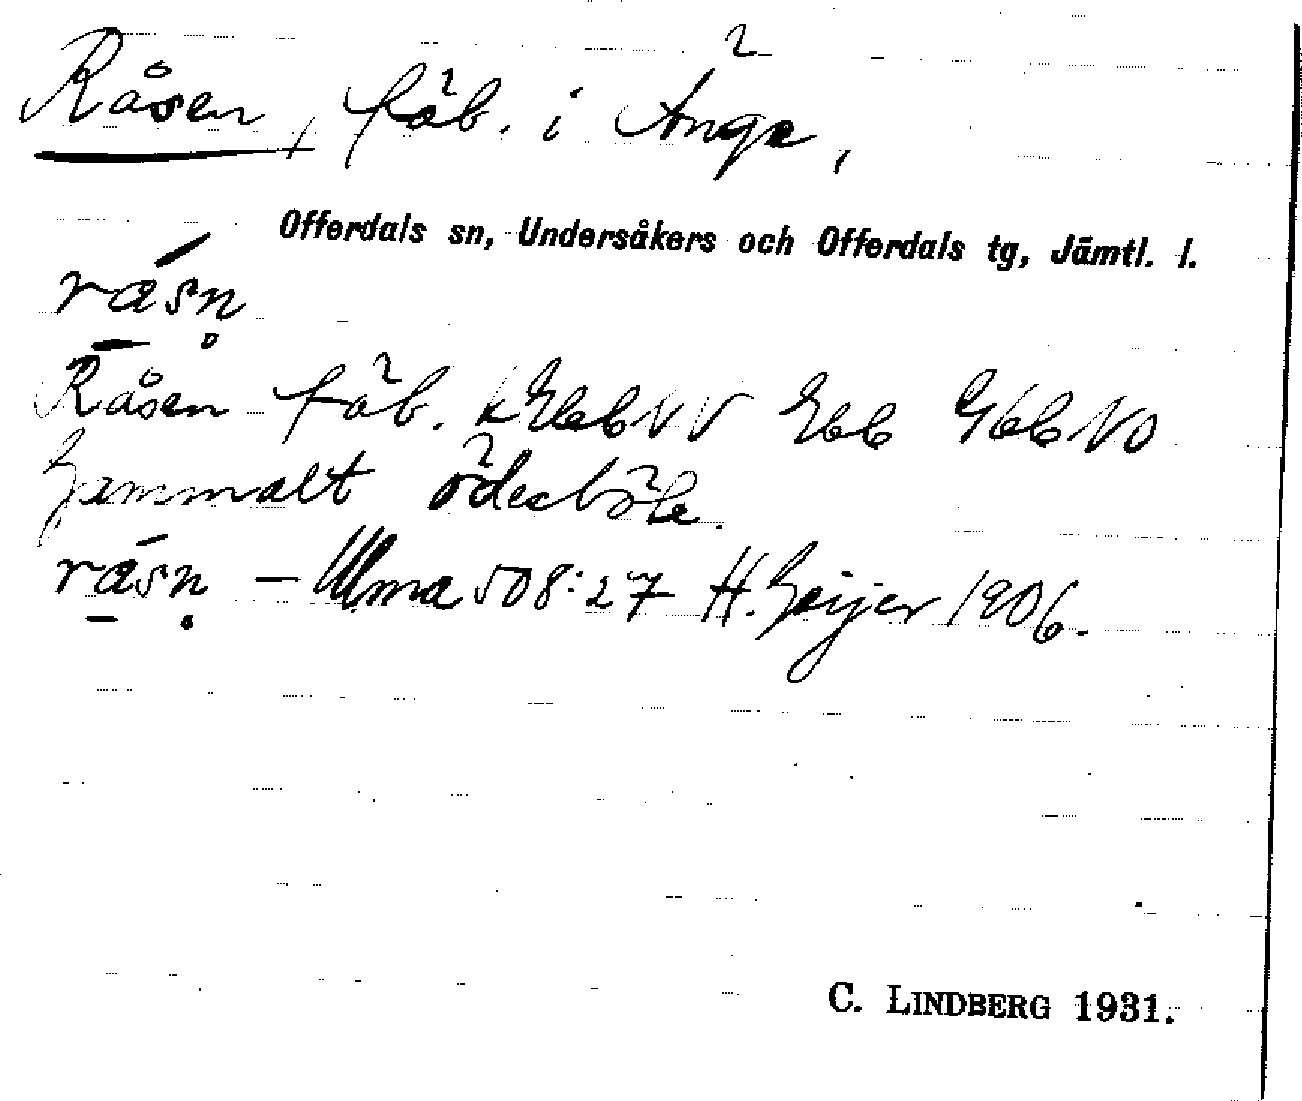 Råsen, fäb. i Änge,
Offerdals sn, Undersåkers och Offerdals tg, Jämtl. l.
råsn̥
Råsen fäb. kEbbNV Ebb GbbNO
Gammalt ödesböle.
råsn̥ – Ulma 508:27 H. Geijer 1906.
C. LINDBERG 1931.